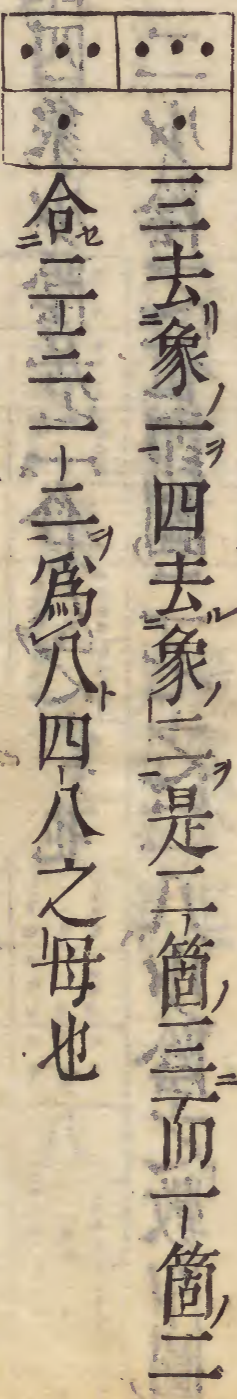 三去象一四去象二是二箇三而一箇二
合二三一二爲八四八之母也